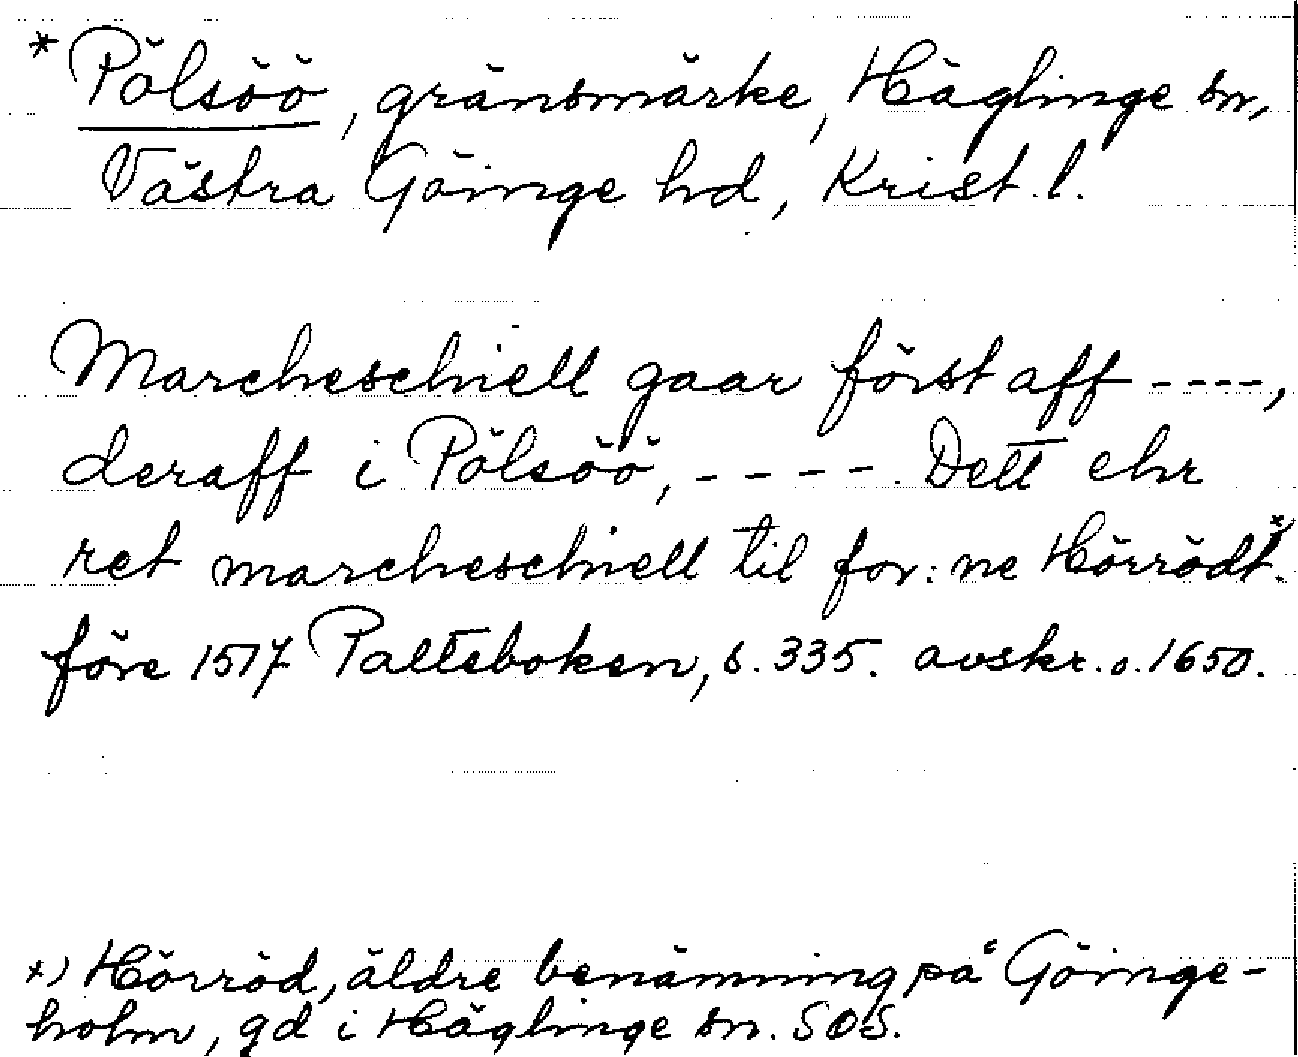 * Pölsöö, gränsmärke, Häglinge sn,
Västra Göinge hd, Krist. l.
Marcheschiell gaar först aff ----,
deraff i Pölsöö, ---- . Dett ehr
ret marcheschiell til for: ne Hörrödt*.
före 1517 Palteboken, s. 335. avskr. o. 1650.
*) Hörröd, äldre benämning på Göinge-
holm, gd i Häglinge sn. SOS.